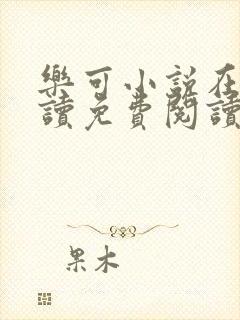 樂可小說在
讀免費閱讀
果木